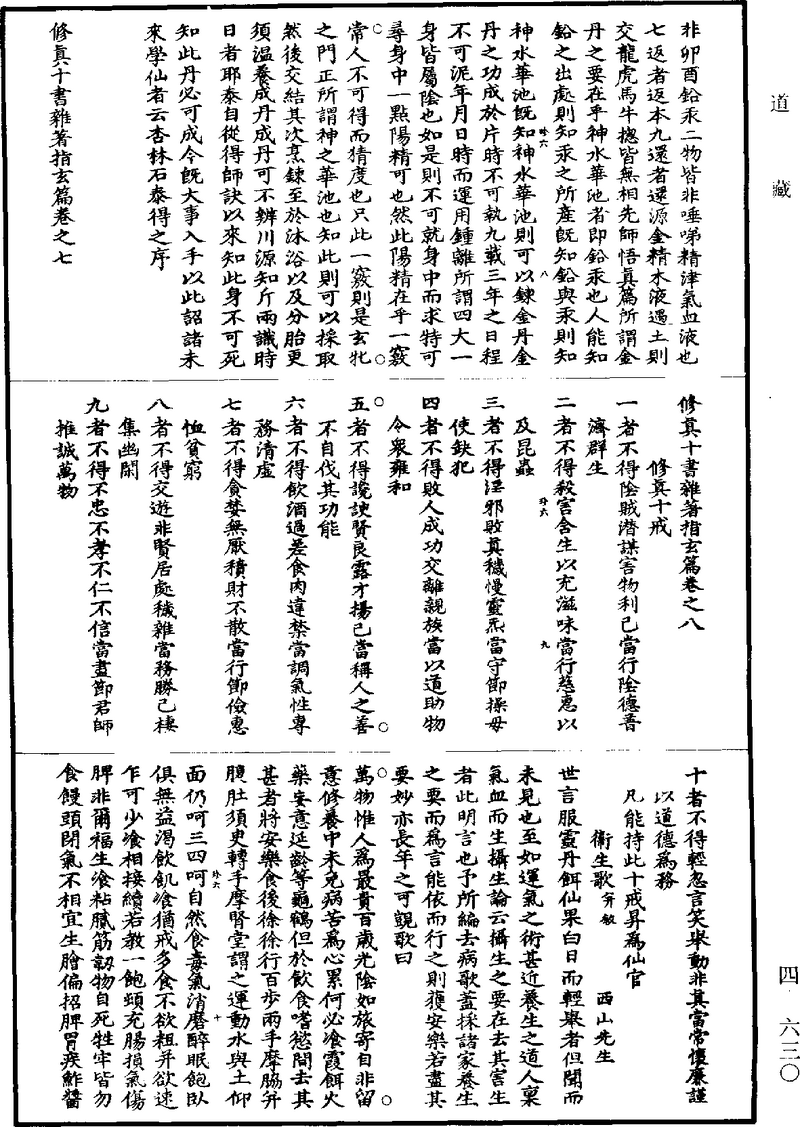 道藏
非卯酉鉛汞二物皆非唾涕精津氣血液也
七返者返本九還者還源金精木液遇土則
交龍虎馬牛揔皆無相先師悟真篇所謂金
丹之要在乎神水華池者即鉛汞也人能知
鉛之出處則知汞之所產既知鉛與汞則知
神水華池既知神水華池則可以鍊金丹金
丹之功成於片時不可執九載三年之日程
不可泥年月日時而運用鍾離所謂四大一
身皆屬陰也如是則不可就身中而求特可
尋身中一點陽精可也然此陽精在乎一竅
常人不可得而猜度也只此一竅則是玄牝
之門正所謂神之華池也知此則可以採取
然後交結其次烹鍊至於沐浴以及分胎更
須溫養成丹成丹可不辨川源知斤兩識時
日者耶泰自從得師訣以來知此身不可死
知此丹必可成今既大事入手以此詔諸未
來學仙者云杏林石泰得之序
修真十書雜著指玄篇卷之七
珍六
八
修真十書雜著指玄篇卷之八
修真十戒
一者不得陰賊潛謀害物利己當行陰德普
濟群生
二者不得殺害含生以充滋味當行慈惠以
及昆蟲
珍六
九
三者不得淫邪敗真穢慢靈炁當守節操毋
使缺犯
四者不得敗人成功交離親族當以道助物
令衆雍和
五者不得讒諛賢良露才揚己當稱人之善
不自伐其功能
六者不得飲酒過差食肉違禁當調氣性專
務清虛
七者不得貪婪無厭積財不散當行節儉惠
恤貧窮
八者不得交遊非賢居處穢雜當務勝己棲
集幽閑
九者不得不忠不孝不仁不信當盡節君師
推誠萬物
十者不得輕忽言笑舉動非真當常懷廉謹
以道德為務
凡能持此十戒昇為仙官
衞生歌并敘
西山先生
世言服靈丹餌仙果白日而輕舉者但聞而
未見也至如運氣之術甚近養生之道人稟
氣血而生攝生論云攝生之要在去其害生
者此明言也予所編去病歌蓋採諸家養生
之要而為言能依而行之則獲安樂若盡其
要妙亦長年之可覬歌曰
萬物惟人為最貴百歲光陰如旅寄自非留
意修養中未免病苦為心累何必飡霞餌火
藥妄意延齡等龜鶴但於飲食嗜慾間去其
甚者將安樂食後徐徐行百步兩手摩脇并
腹肚須臾轉手摩腎堂謂之運動水與土仰
面仍呵三四呵自然食毒氣消磨醉眠飽臥
俱無益渴飲飢飡猶戒多食不欲粗并欲速
乍可少飡相接續若教一飽頓充腸損氣傷
脾非爾福生飡粘膩筋韌物自死牲牢皆勿
食饅頭閉氣不相宜生膾偏招脾胃疾鮓醬
珍六
十
四·六三〇